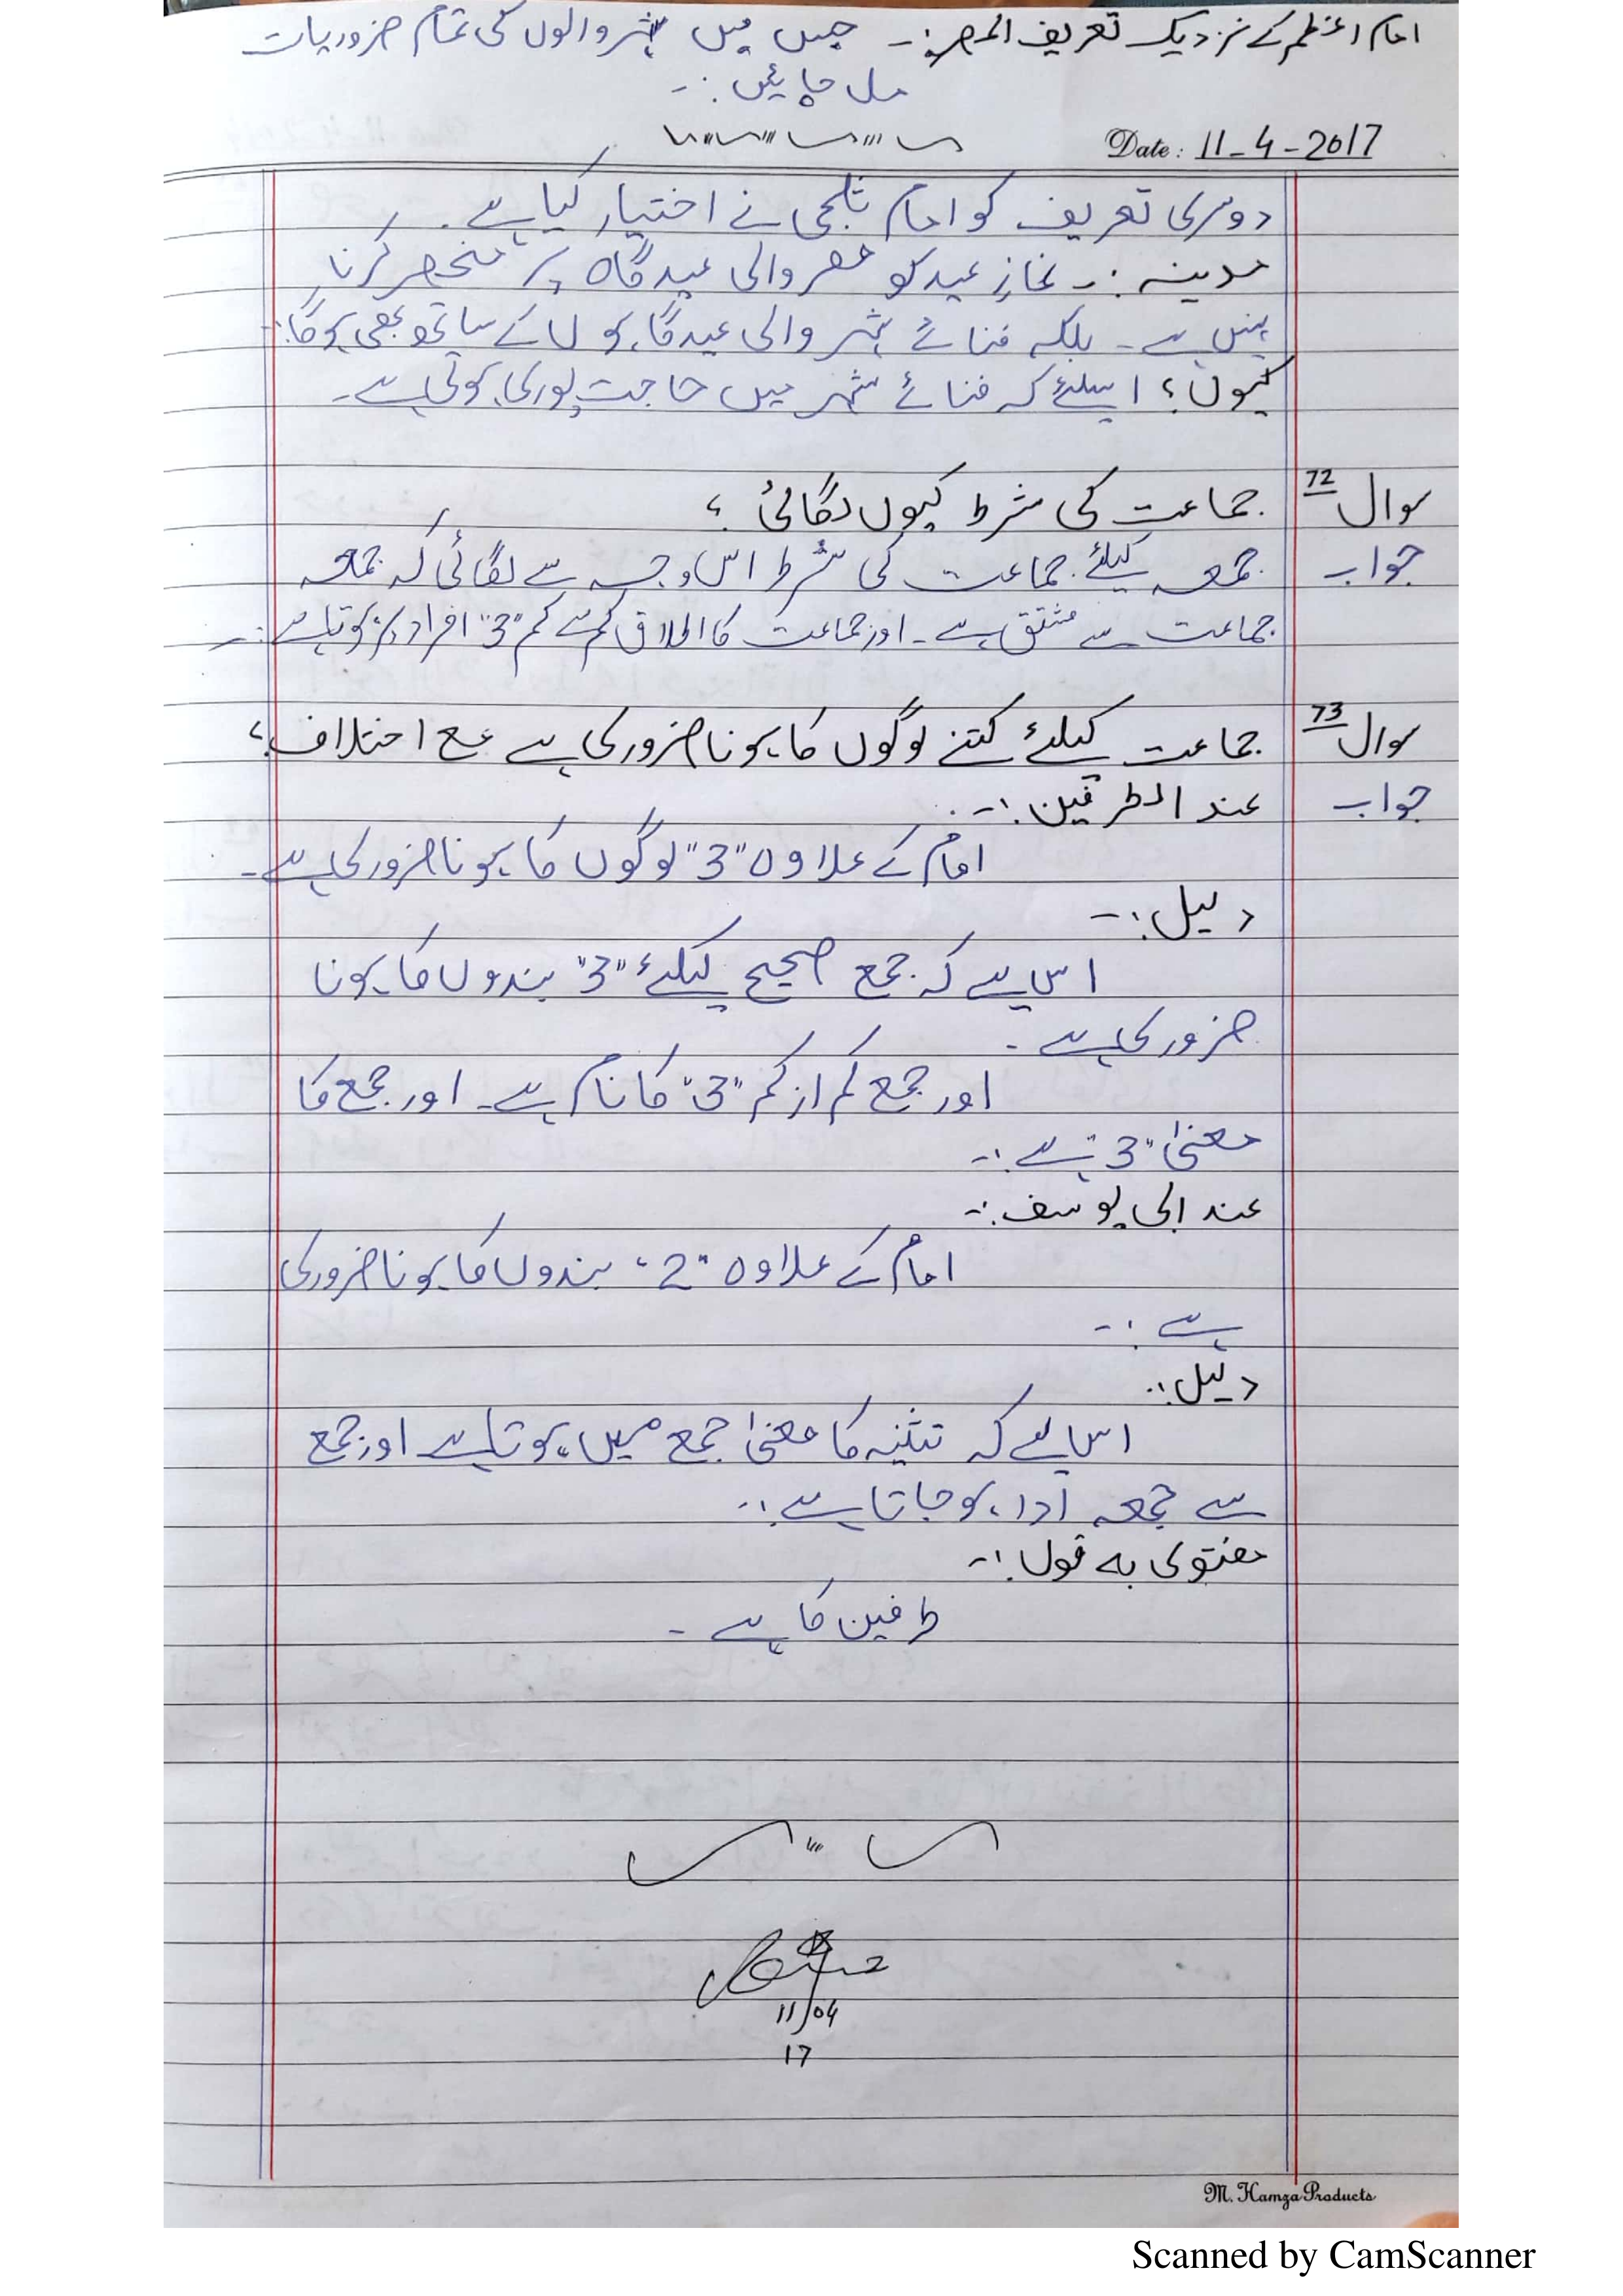 امام اعظم کے نزدیک تعریف المصر:۔ جس میں شہر والوں کی تمام ضروریات
مل جائیں :۔
Date: 11-4-2017
دوسری تعریف کو امام ثلجی نے اختیار کیا ہے۔
مدینہ :۔ نمازِ عید کو مصر والی عید گاہ پر منحصر کرنا
نہیں ہے۔ بلکہ فنائے شہر والی عید گاہوں کے ساتھ بھی ہوگا:۔
کیوں؟ اسلئے کہ فنائے شہر میں حاجت پوری ہوتی ہے۔
سوال 72 جماعت کی شرط کیوں لگائی ؟
جواب جمعہ کیلئے جماعت کی شرط اس وجہ سے لگائی کہ جمعہ
جماعت سے مشتق ہے۔ اور جماعت کا اطلاق کم سے کم "3" افراد پر ہوتا ہے:۔
سوال 73 جماعت کیلئے کتنے لوگوں کا ہونا ضروری ہے مع اختلاف؟
جواب عند الطرفین:۔
امام کے علاوہ "3" لوگوں کا ہونا ضروری ہے۔
دلیل:۔
اس لیے کہ جمع صحیح کیلئے "3" بندوں کا ہونا
ضروری ہے۔
اور جمع کم از کم "3" کا نام ہے۔ اور جمع کا
معنیٰ "3" ہے:۔
عند ابی یوسف:۔
امام کے علاوہ "2" بندوں کا ہونا ضروری
ہے:۔
دلیل:۔
اس لیے کہ تثنیہ کا معنیٰ جمع میں ہوتا ہے اور جمع
سے جمعہ ادا ہو جاتا ہے:۔
مفتوی بہ قول:۔
طرفین کا ہے۔
11/04
17
M. Hamza Products
Scanned by CamScanner